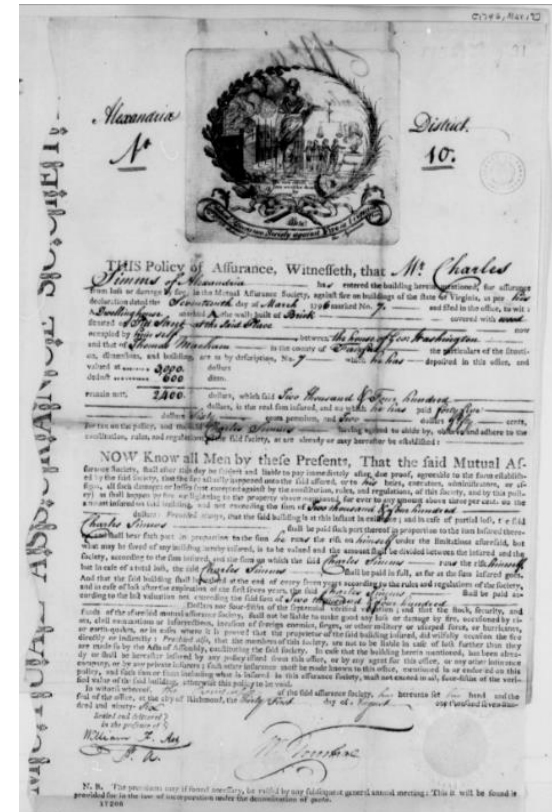 [1796, Mar. 17]
Alexandria District.
No 10.
MUTUAL ASSURANCE SOCIETY
THIS Policy of Assurance, Witnesseth, that Mr. Charles
Simms of Alexandria has entered the building herein mentioned, for assurance
from loss or damage by fire, in the Mutual Assurance Society, against fire on buildings of the state of Virginia, as per his
declaration dated the Seventeenth day of March 1796 marked No. 7. and filed in the office, to wit:
a Dwellinghouse marked A the walls built of Brick covered with wood
situated at the said Place now
occupied by him self between the house of Geo Washington
and that of Thomas in the county of Fairfax the particulars of the
dimensions, and building, are as by description, No. 7 which he has deposited in this office, and
valued at 3000. dollars
deduct 600 ditto.
remain nett: 2400 dollars, which said Two thousand & Four hundred
dollars, is the real sum insured, and on which he has paid
dollars upon premium, and Two dollars fifty cents,
for on the policy, and the said Charles Simms having agreed to abide by, observe and adhere to the
constitution, rules, and regulations of the said society, as are already or may hereafter be established:
NOW Know all Men by these Presents, That the said Mutual As-
surance Society, shall after this day be subject and liable to pay immediately after due proof, agreeable to the form establish-
ed by the said Society, that the fire actually happened unto the said assured, or to his heirs, executors, administrators, or as-
signs, all such damages or losses (not excepted against by the constitution, rules, and regulations, of this society, and by this poli-
cy) as shall happen by fire or lightening to the property above mentioned, for ever to any amount above three per cent. on the
amount insured on said building, and not exceeding the sum of Two thousand & four hundred
dollars: Provided always, that the said building is at this instant in existence; and in case of partial loss, the said
Charles Simms shall be paid such part thereof in proportion to the sum insured there-
on and shall bear such part in proportion to the sum he runs the risk on himself under the limitations aforesaid, but
what may be saved of any building hereby insured, is to be valued and the amount shall be divided between the insured and the
society, according to the sum insured, and the sum on which the said Charles Simms runs the risk himself
but in case of a total loss, the said Charles Simms shall be paid in full, as far as the sum insured goes.
And that the said building shall be valued at the end of every seven years according to the rules and regulations of the society,
and in case of loss after the expiration of the first seven years, the said Charles Simms shall be paid ac-
cording to the last valuation not exceeding the said sum of Two thousand & four hundred
Dollars nor four-fifths of the valuation; and that the stock, security, and
funds of the aforesaid mutual assurance society, shall not be liable to make good any loss or damage by fire, occasioned by ri-
ots, civil commotions or insurrections, invasion of foreign enemies, forces, or other military or usurped force, or hurricanes,
or earth-quakes, or in cases where it is proved that the proprietor of the said building insured, did wilfully occasion the fire
directly or indirectly: Provided also, that the members of this society, are not to be liable in case of loss further than they
are made so by the Acts of Assembly, constituting the said society. In case that the building herein mentioned, has been alrea-
dy or shall be hereafter insured by any policy issued from this office, or by any agent for this office, or any other insurance
company, or by any private insurers; such other insurance must be made known to this office, mentioned in or endorsed on this
policy, and such sum or sums including what is insured in this society, shall not exceed in all, four-fifths of the veri-
fied value of the said building, otherwise this policy to be void.
In witness whereof, the of the said assurance society, has hereunto set his hand and the
seal of the office, at the city of Richmond, the Thirty First day of August one thousand seven hun-
dred and ninety-Six
Sealed and delivered
in the presence of
William F. Ast
P. A.
N. B. The provisions may if found necessary, be varied by any subsequent general annual meeting: This it will be found is
provided for in the law of incorporation under the denomination of quota.
17206